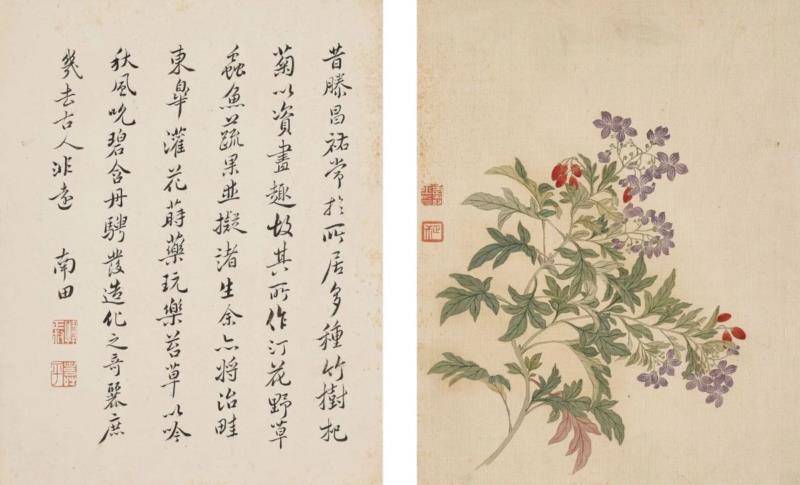 昔滕昌祐常於所居多種竹樹杞
菊以資畫趣故其所作汀花野草
蟲魚蔬果並擬諸生余亦將治畦
東皋灌花蒔藥玩樂苔草以吟
秋風吮碧含丹騁發造化之奇麗庶
幾去古人非遠
南田